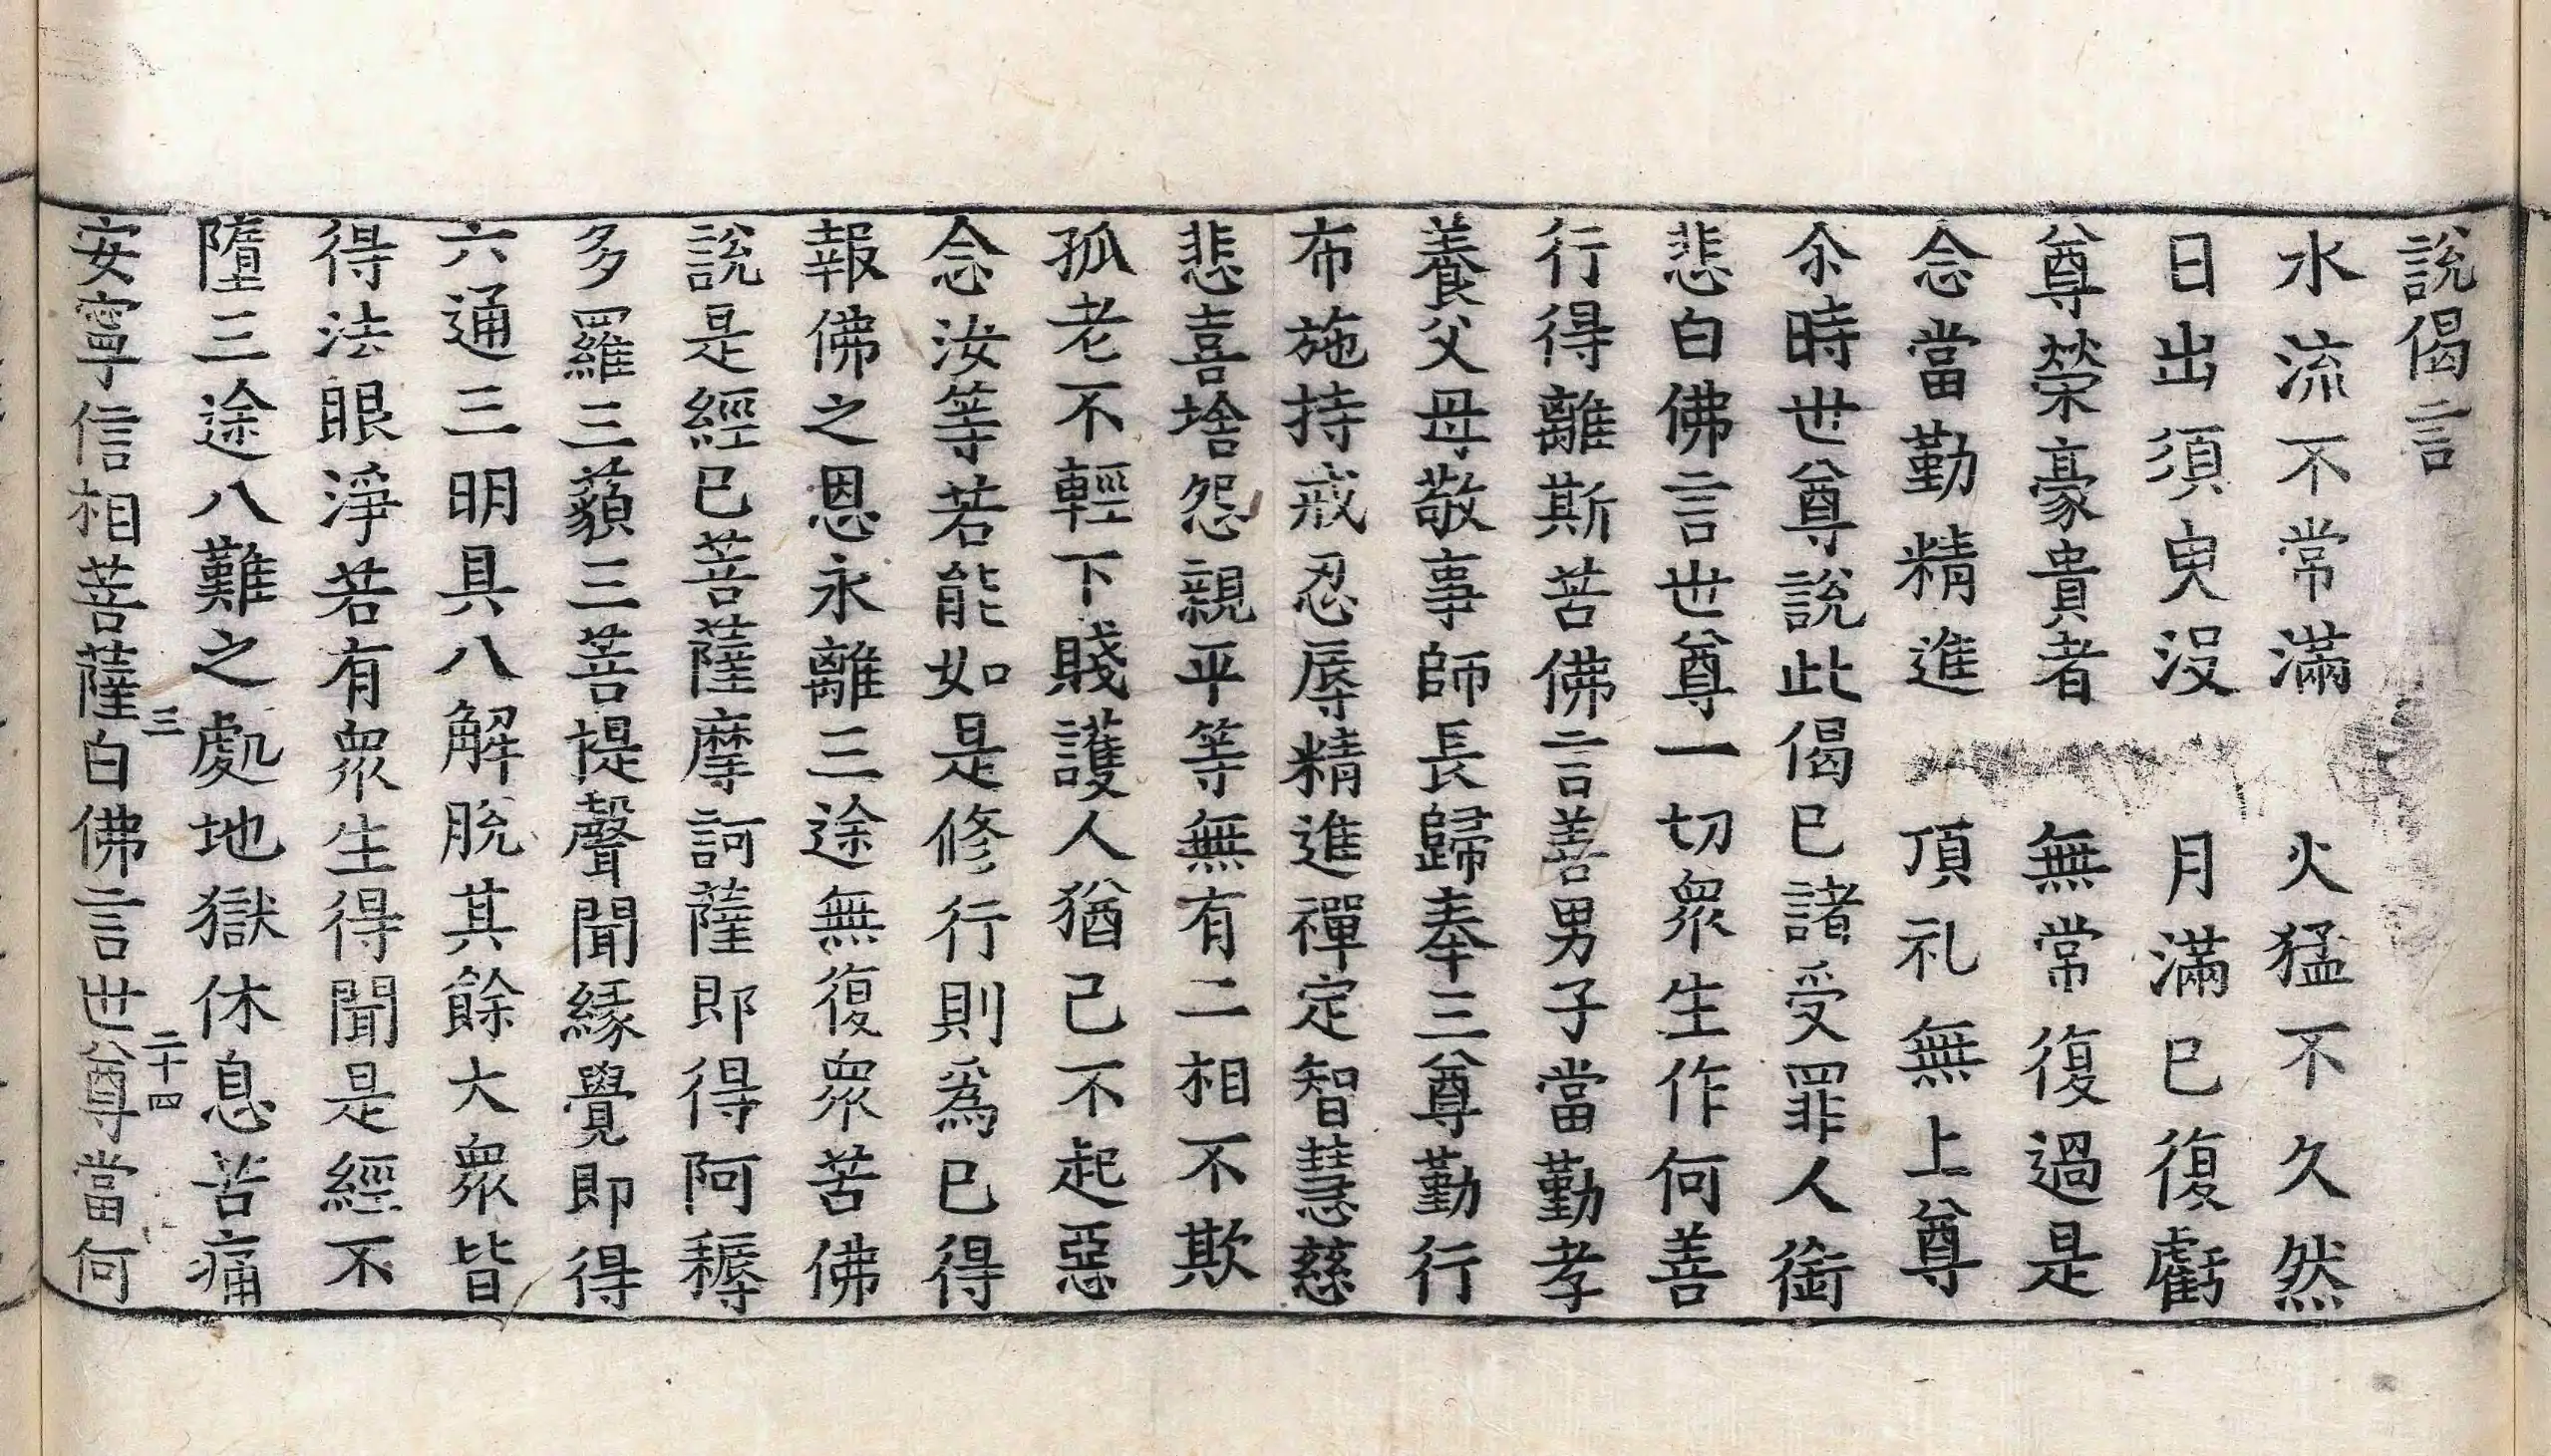 說偈言
水流不常滿　火猛不久然
日出須臾没　月滿已復虧
尊榮豪貴者　無常復過是
念當勤精進　頂礼無上尊
尒時世尊說此偈已諸受罪人銜
悲白佛言世尊一切衆生作何善
行得離斯苦佛言善男子當勤孝
養父母敬事師長歸奉三尊勤行
布施持戒忍辱精進禪定智慧慈
悲喜捨怨親平等無有二相不欺
孤老不輕下賤護人猶己不起惡
念汝等若能如是修行則爲已得
報佛之恩永離三途無復衆苦佛
說是經已菩薩摩訶薩即得阿耨
多羅三藐三菩提聲聞緣覺即得
六通三明具八解脫其餘大衆皆
得法眼淨若有衆生得聞是經不
墮三途八難之處地獄休息苦痛
三　二十四
安寧信相菩薩白佛言世尊當何